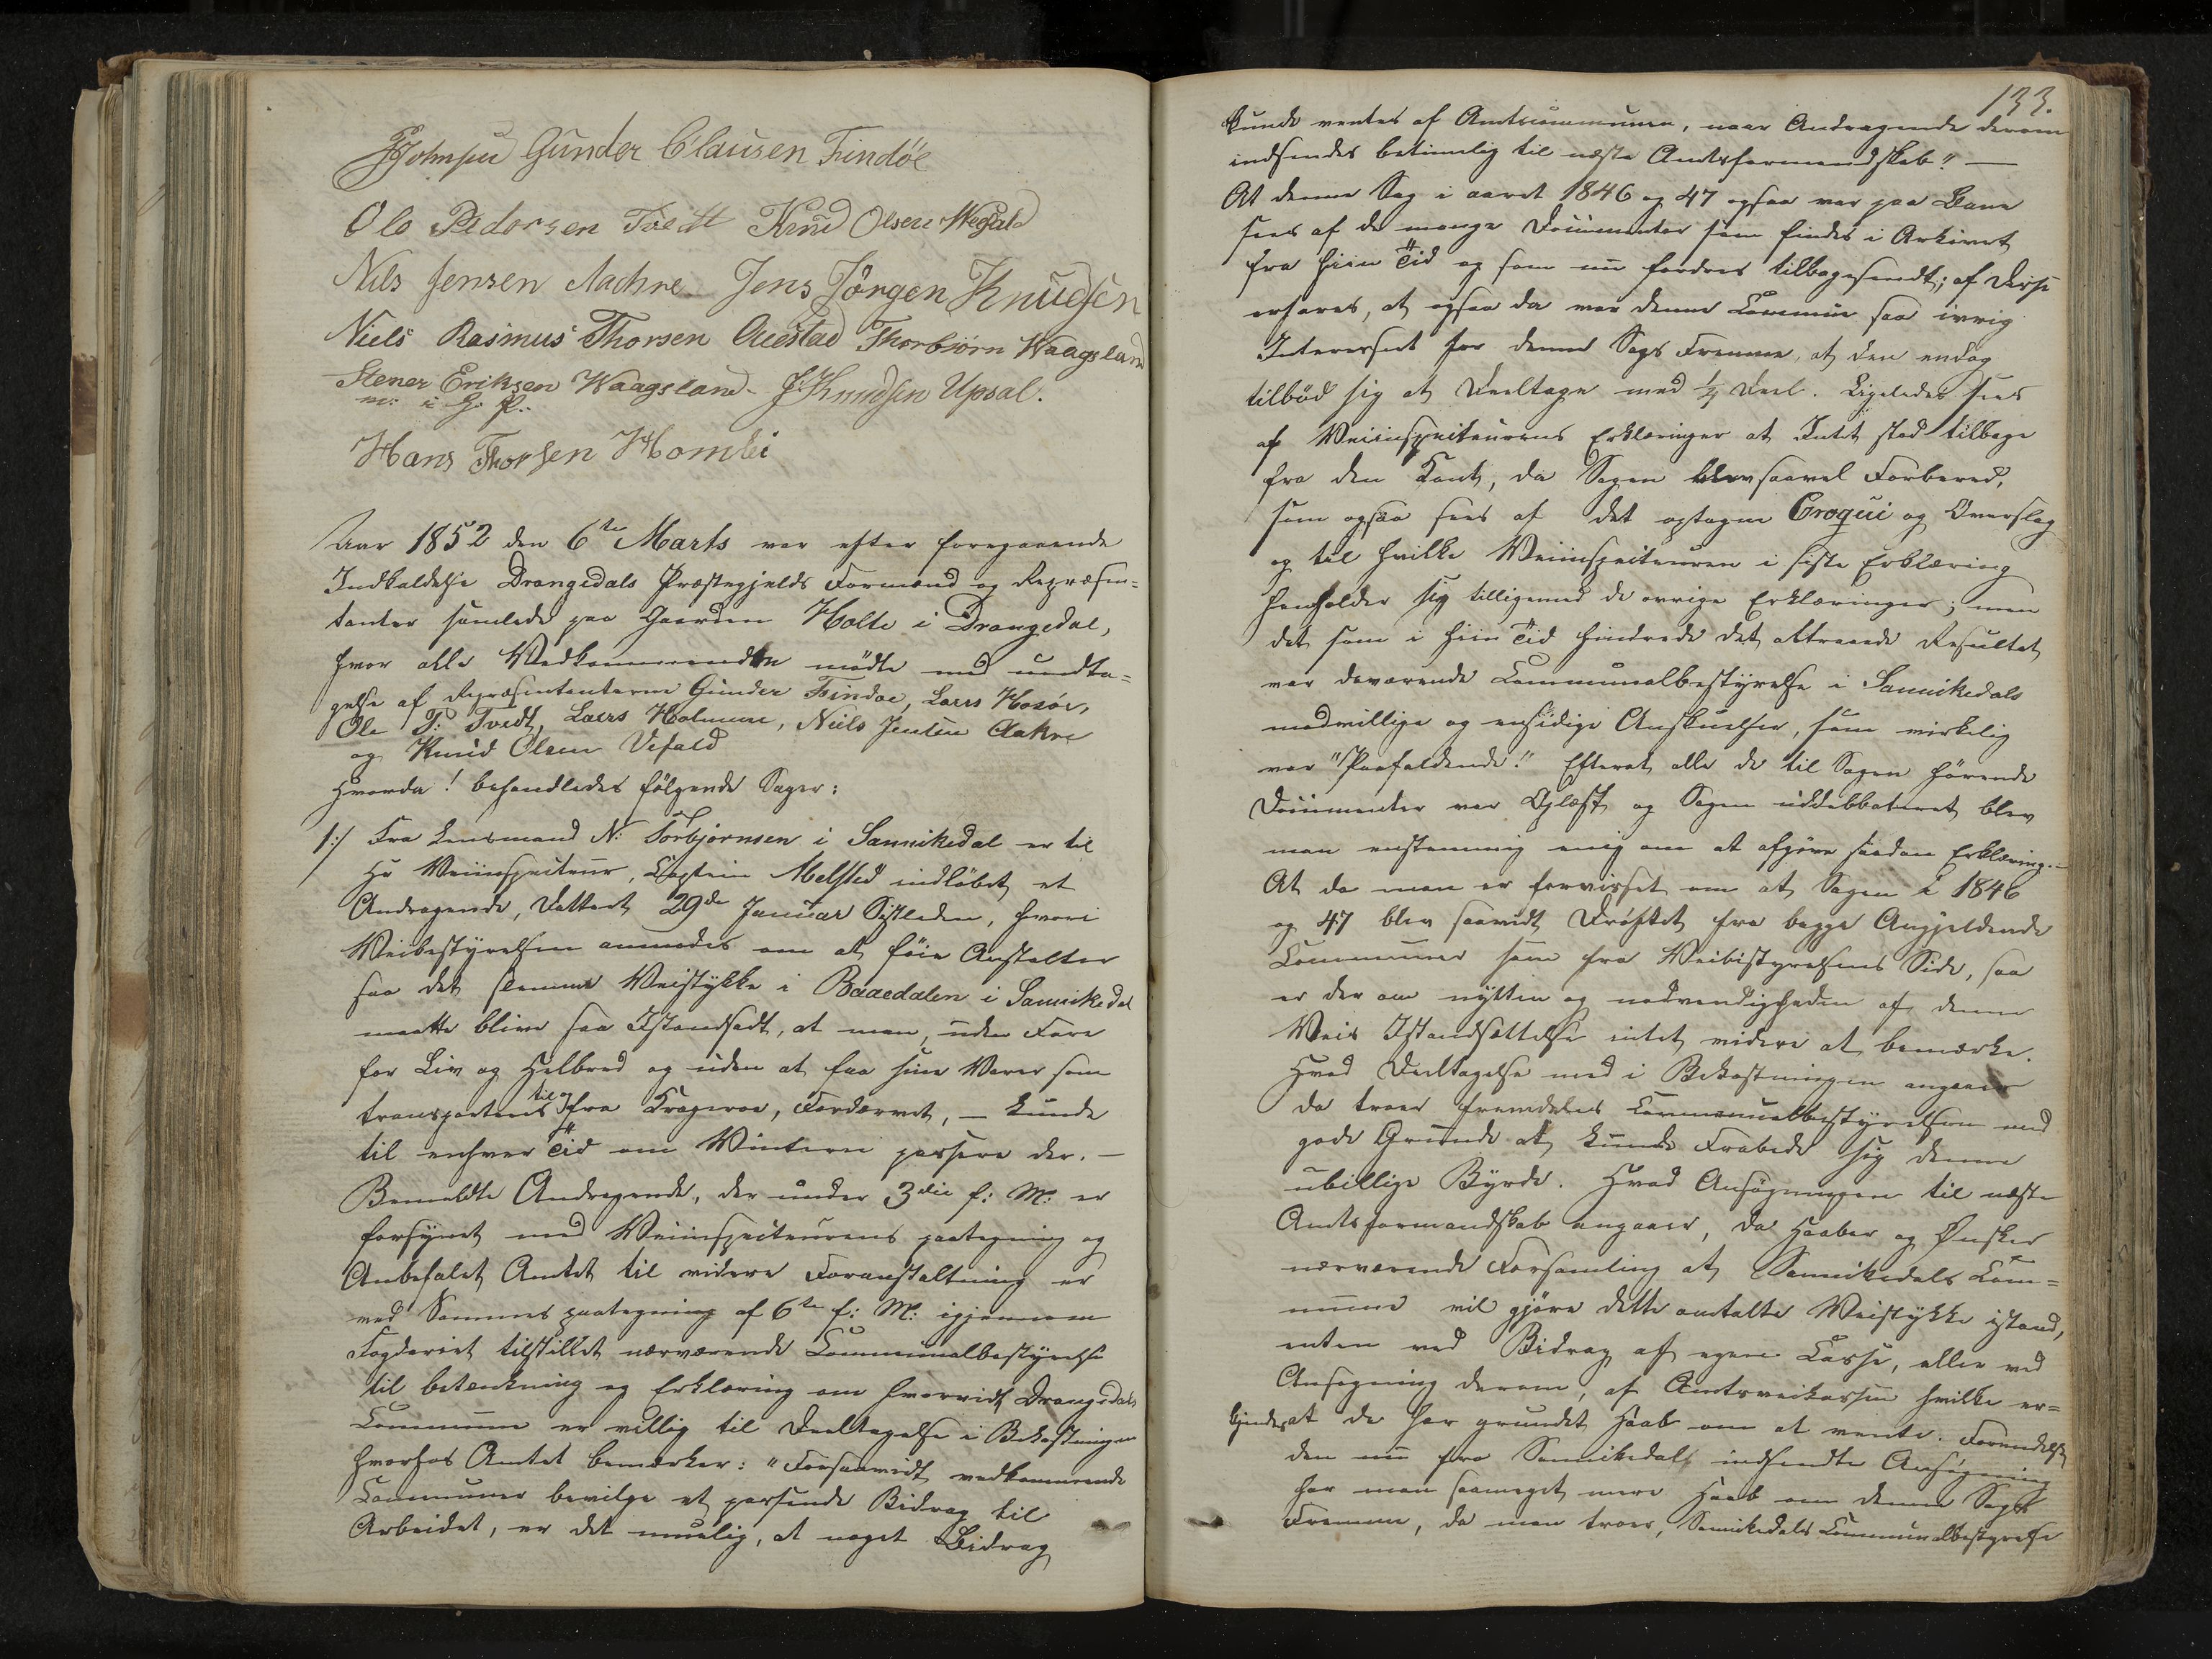 Gunder Clausen Findøe
Ole Pedersen Tvedt Knud Olsen Wefald
Nils Jensen Aachre Jens Jörgen Knudsen
Niels Rasmus Thorsen Thorbiörn Waagsland
Stener Eriksen Waagsland J. Knudsen Upsal.
m: i H: P:
Hans Thorsen
Aar 1852 den 6te Marts var efter foregaaende
Indkaldelse Drangedals Præstegjelds Formænd og Repræsen=
tanter samlede paa Gaarden Holte i Drangedal,
hvor alle Vedkommende mödte med undta=
gelse af Repræsentanterne Gunder Findøe, Lars Hosöe,
Ole P. Tvedt, Lars Holmen, Niels Jensen Aakre
og Knud Olsen Vefald
Hvorda! behandledes fölgende Sager:
1:/ Fra Lensmand N: Torbjörnsen i Sannikedal er til
Hr Veiinspecteur, Captein Melsted indlöbet et
Andragende, datteret 29de Januar Sistleden, hvori
Veibestyrelsen anmodes om at föie Anstalter
saa det slemme Veistykke i Baaedalen i Sannikedal
maatte blive saa Istandsadt, at man, uden Fare
for Liv og Helbred og uden at faa sine Varer som
transporteres til og fra Krageröe, Fordærvet, — kunde
til enhver Tid om Vinteren passere der. —
Bemeldte Andragende, der under 3die f: M: er
forsynet med Veiinspecteurens paategning og
Anbefalet Amtet til videre Foranstaltning er
ved Sammes paategning af 6te f: M: igjennem
Fogderiet tilstillet nærværende Communalbestyrelse
til betænkning og Erklæring om hvorvidt Drangedals
Commune er villig til Deeltagelse i Bekostningen
hvorhos Amtet bemærker: "Forsaavidt vedkommende
Communer bevilge et passende Bidrag til
Arbeidet, er det muelig, at noget Bidrag
133.
kunde ventes af Amtscommunen, naar Andragende derom
indsendes betimelig til næste Amtsformandskab." —
At denne Sag i aaret 1846 og 47 ogsaa var paa Bane
sees af de mange Documenter som findes i Arkivet
fra hiin Tid og som nu fordres tilbagesendt; af Disse
erfares, at ogsaa da var denne Commune saa ivrig
Interesseret for denne Sags Fremme, at den endog
tilböd sig at Deeltage med 1/4 Deel. Ligeledes sees
af Veiinspecteurens Erklæringer at Intet stod tilbage
fra den Kant, da Sagen blev saavel Forbered,
som ogsaa sees af det optagne Croqui og Overslag
og til hvilke Veiinspecteuren i siste Erklæring
henholder sig tilligemed de övrige Erklæringer; men
det som i hiin Tid hindrede det attraaede Resultat
var daværende Communalbestyrelse i Sannikedals
modvillige og ensidige Anskuelser, som virkelig
var "Paafaldende." Efterat alle de til Sagen hörende
Documenter var Oplæst og Sagen uddebbateret blev
man enstemmig enig om at afgive saadan Erklæring. —
At da man er forvisset om at Sagen i 1846
og 47 blev saavidt Dröftet fra begge Angjeldende
Communer som fra Veibestyrelsens Side, saa
er der om nytten og nödvendigheden af denne
Veis Istandsættelse intet videre at bemærke.
Hvad Deeltagelse med i Bekostningen angaaer
da troer fremdeles Communalbestyrelsen med
gode Grunde at kunde Frabede sig denne
ubillige Byrde. Hvad Ansögningen til næste
Amtsformandskab angaaer, da Haaber og Önsker
nærværende Forsamling at Sannikedals Com=
mune vil gjöre dette omtalte Veistykke istand,
enten ved Bidrag af egen Casse, eller ved
Ansögning derom, af Amtsveikassen hvilke er=
kjendes at de har grundet Haab om at vente.
den nu fra Sannikedal indsendte Ansögning
har man saameget mere Haab om denne Sags
Fremme, da man troer, Sannikedals Communalbestyrelse